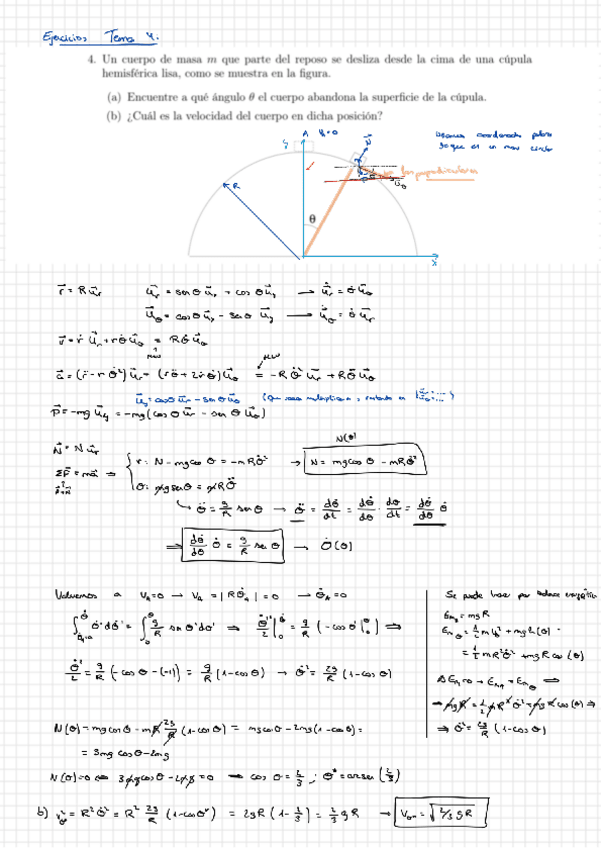 Ejercicios Tema 4.
4. Un cuerpo de masa m que parte del reposo se desliza desde la cima de una cúpula
hemisférica lisa, como se muestra en la figura.
(a) Encuentre a qué ángulo θ el cuerpo abandona la superficie de la cúpula.
(b) ¿Cuál es la velocidad del cuerpo en dicha posición?
A
N
y
R
θ
x
r⃗ = R u⃗r   u⃗r = senθ u⃗x + cosθ u⃗y → u⃗̇r = θ̇ u⃗θ
u⃗θ = cosθ u⃗x - senθ u⃗y → u⃗̇θ = θ̇ u⃗r
v⃗ = ṙ u⃗r + rθ̇ u⃗θ = Rθ̇ u⃗θ
a⃗ = (r̈ - rθ̇²) u⃗r + (rθ̈ + 2ṙθ̇) u⃗θ = -Rθ̇² u⃗r + Rθ̈ u⃗θ
u⃗y = cosθ u⃗r - senθ u⃗θ
P⃗ = -mg u⃗y = -mg(cosθ u⃗r - senθ u⃗θ)
N⃗ = N u⃗r
N(θ)
ΣF⃗ = ma⃗ ⇒ { r: N - mg cosθ = -mRθ̇² → N = mg cosθ - mRθ̇²
θ: mg senθ = mRθ̈
↳ θ̈ = g/R senθ → θ̈ = dθ̇/dt = dθ̇/dθ · dθ/dt = dθ̇/dθ θ̇
⇒ dθ̇/dθ θ̇ = g/R senθ → θ̇(θ)
Volvemos a VA=0 → VA = |Rθ̇A| = 0 → θ̇A = 0
∫ θ̇' dθ̇' = ∫ g/R senθ' dθ' ⇒ θ̇²/2 |₀ = g/R (-cosθ |₀) ⇒
θ̇²/2 = g/R (-cosθ - (-1)) = g/R (1-cosθ) → θ̇² = 2g/R (1-cosθ)
Se puede hacer por balance energético
EmA = mgR
Emθ = 1/2 m vθ² + mgh(θ) =
= 1/2 m R²θ̇² + mgR cos(θ)
ΔEm=0 → EmA = Emθ ⇒
→ mgR = 1/2 mR²θ̇² + mgR cos(θ) ⇒
⇒ θ̇² = 2g/R (1-cosθ)
N(θ) = mg cosθ - mR 2g/R (1-cosθ) = mg cosθ - 2mg(1-cosθ) =
= 3mg cosθ - 2mg
N(θ)=0 ⇔ 3mg cosθ - 2mg = 0 → cosθ = 2/3 ; θ* = arcsen (2/3)
b) vθ*² = R²θ̇² = R² 2g/R (1-cosθ*) = 2gR (1 - 2/3) = 2/3 gR → Vθ* = √(2/3 gR)